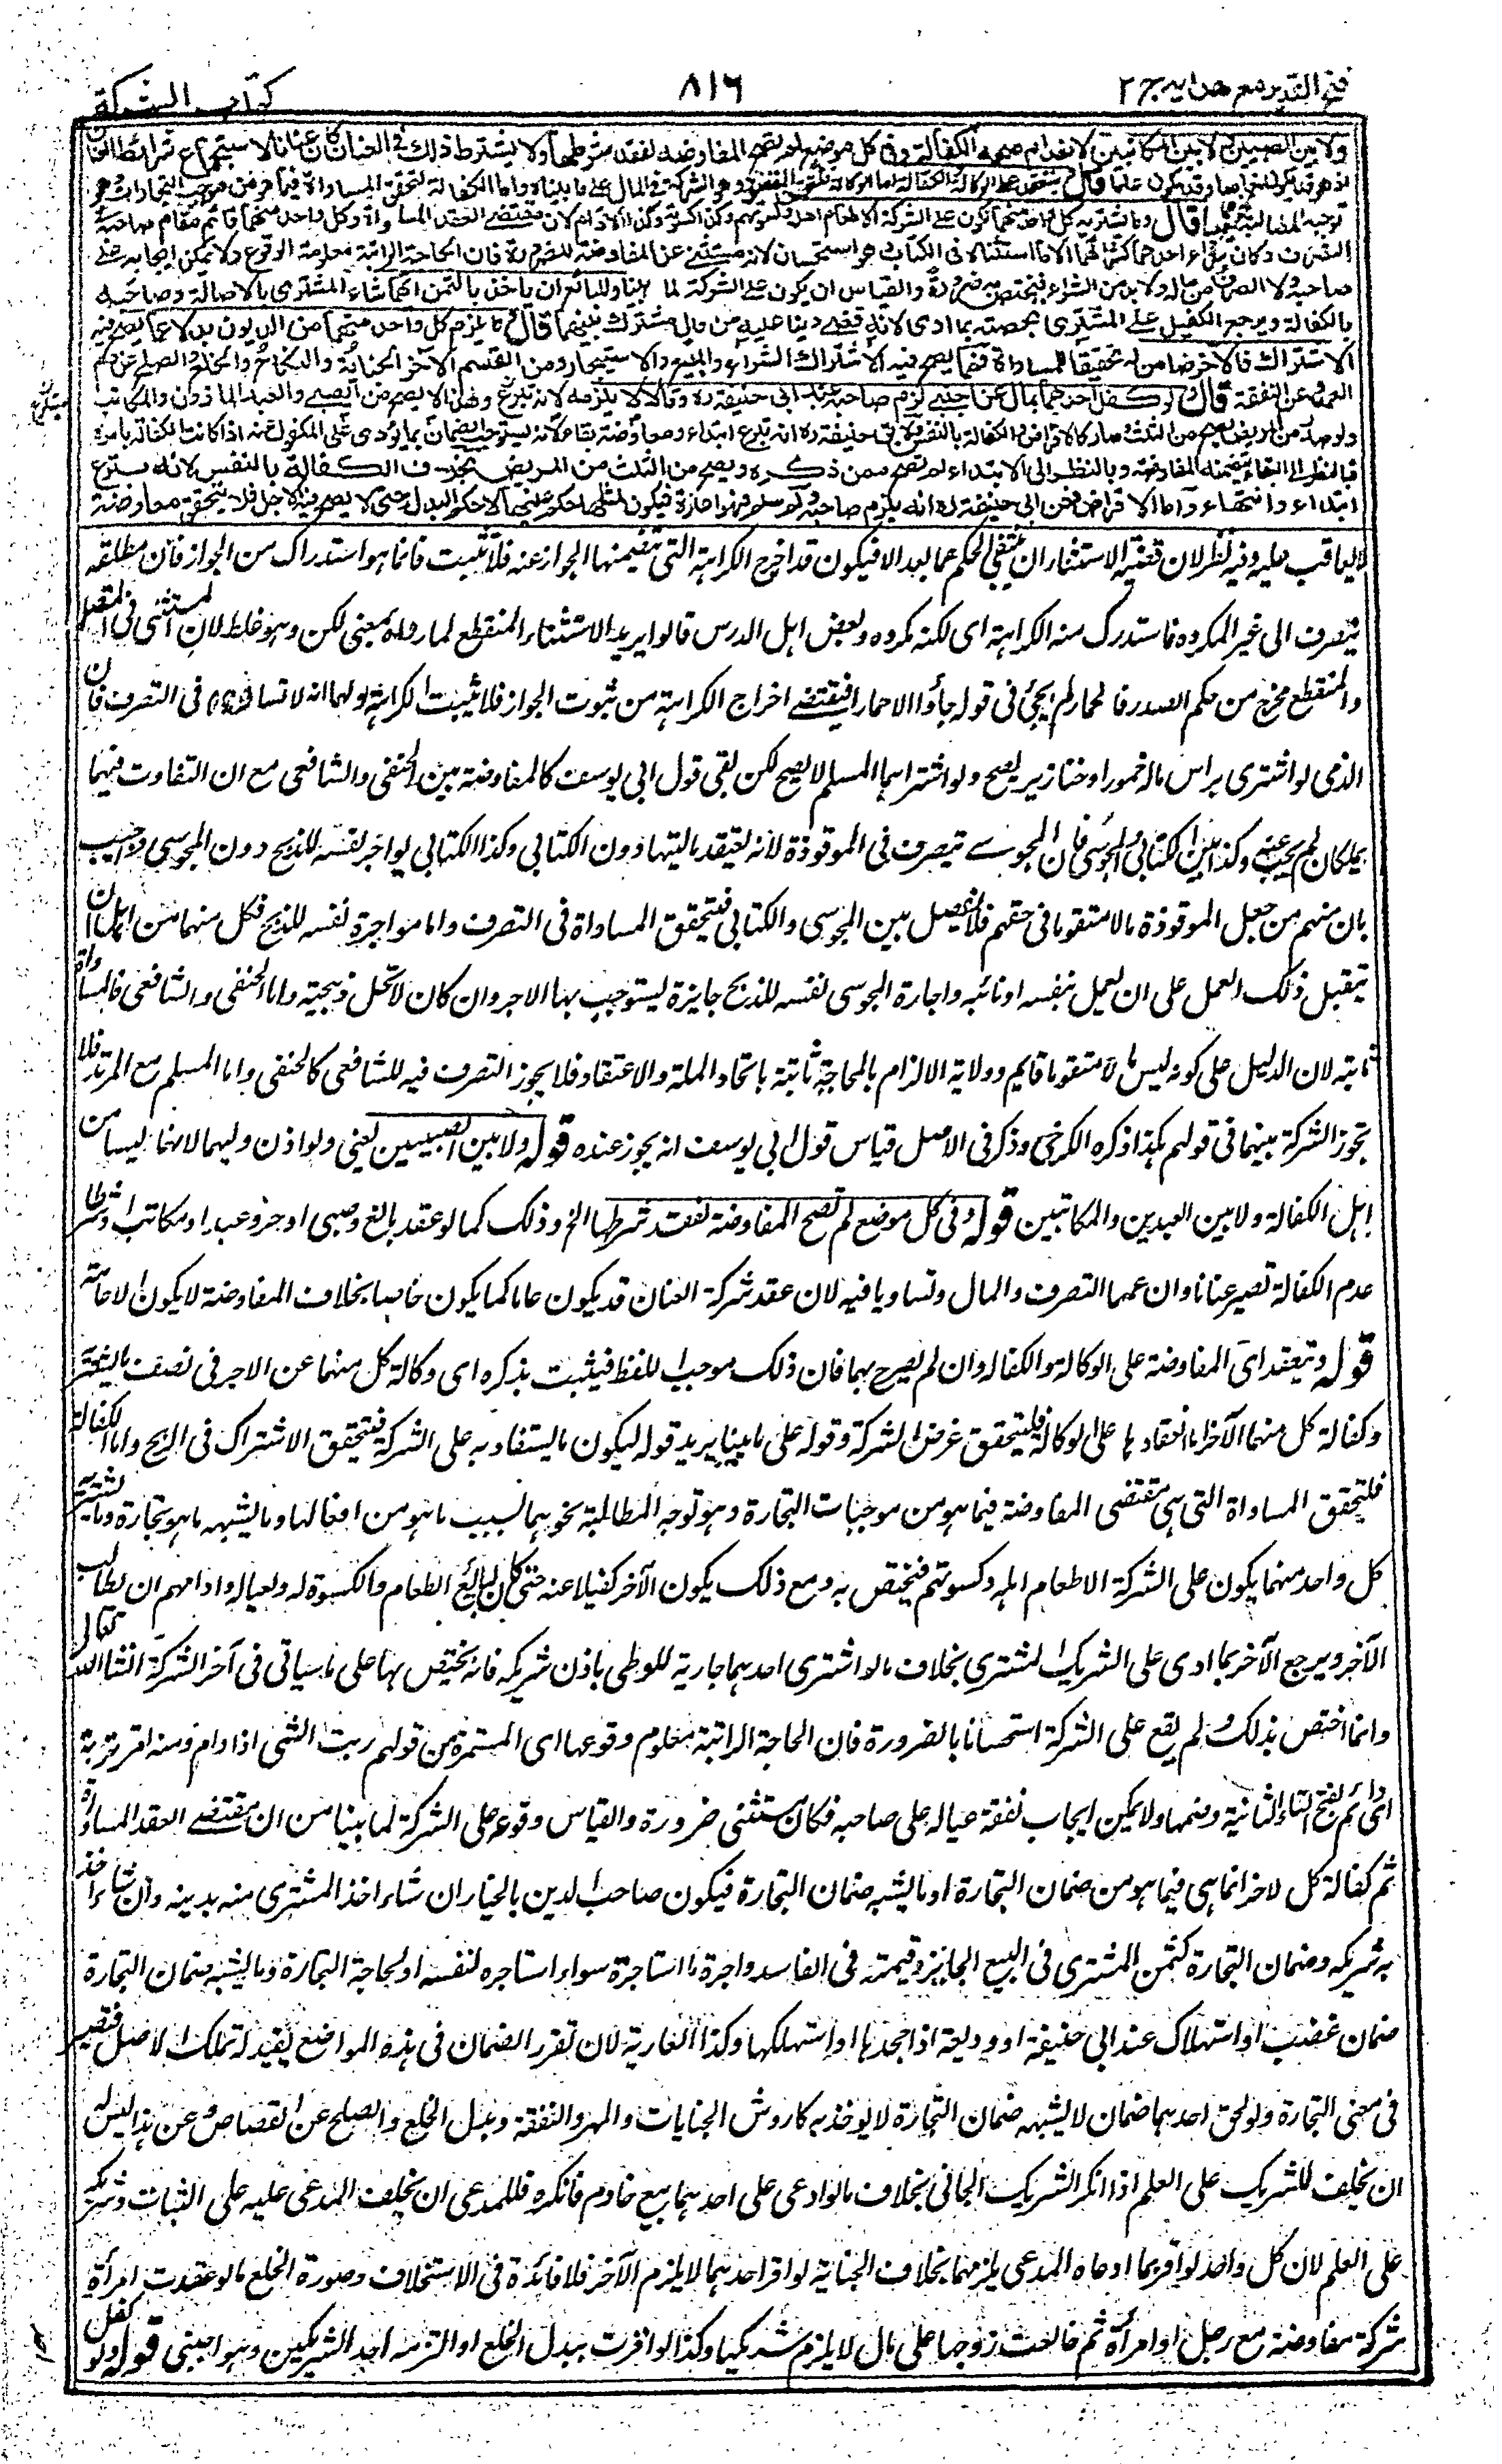 فتح القدير مع هدايه ج ٢
٨١٦
كتاب الشركة
ولا بين الصبيين ولا بين المكاتبين لانعدام صحة الكفالة وفى كل موضع لم تصح المفاوضة لفقد شرطها ولا يشترط ذلك فى العنان كان عنانا لاستجماع شرائط العنان
اذ هو قد يكون خاصا وقد يكون عاما قال وتنعقد على الوكالة والكفالة اما الوكالة فلتحقق المقصود وهو الشركة فى المال على ما بيناه واما الكفالة لتحقق المساواة فيما هو من موجب التجارات وهو
توجه المطالبة نحوهما قال وما يشتريه كل واحد منهما يكون على الشركة الا طعام اهله وكسوتهم وكذا كسوته وكذا الادام لان مقتضى العقد المساواة وكل واحد منهما قائم مقام صاحبه
التصرف وكان شراء احدهما كشرائهما الا ما استثناه فى الكتاب وهو استحسان لانه مستثنى عن المفاوضة للضرورة فان الحاجة الراتبة معلومة الوقوع ولا يمكن ايجابه على
صاحبه ولا الصرف من ماله ولا بد من الشراء فيختص به ضرورة والقياس ان يكون على الشركة لما بينا وللبائع ان ياخذ بالثمن ايهما شاء المشترى بالاصالة وصاحبه
بالكفالة ويرجع الكفيل على المشترى بحصته بما ادى لانه قضى دينا عليه من مال مشترك بينهما قال وما يلزم كل واحد منهما من الديون بدلا عما يصح فيه
الاشتراك فالآخر ضامن له تحقيقا للمساواة فمما يصح فيه الاشتراك الشراء والبيع والاستيجار ومن القسم الآخر الجناية والنكاح والخلع والصلح عن دم
العمد وعن النفقة قال ولو كفل احدهما بمال عن اجنبى لزم صاحبه عند ابى حنيفة ره وقالا لا يلزمه لانه تبرع ولهذا لا يصح من الصبى والعبد الماذون والمكاتب
ولو صدر من المريض يصح من الثلث وصار كالاقراض والكفالة بالنفس ولابى حنيفة ره انه تبرع ابتداء ومعاوضة بقاء لانه يستوجب الضمان بما يؤدى على المكفول عنه اذا كانت الكفالة بامره
فبالنظر الى البقاء يتضمنه المفاوضة وبالنظر الى الابتداء لم تصح ممن ذكره ويصح من الثلث من المريض بخلاف الكفالة بالنفس لانه تبرع
ابتداء وانتهاء واما الاقراض فعن ابى حنيفة ره انه يلزم صاحبه ولو سلم فهو اعارة فيكون لمثلها حكم عينها لا حكم البدل حتى لا يصح فيه الاجل فلا يتحقق معاوضة
لا يعاقب عليه وفيه نظر لان قضية الاستثناء ان ينتفى الحكم عما بعد الا فيكون قد اخرج الكراهة التى تضمنها الجواز عنه فلا تثبت فانما هو استدراك من الجواز فان مطلقه
ينصرف الى غير المكروه فاستدرك منه الكراهة اى لكنه مكروه وبعض اهل الدرس قالوا يريد الاستثناء المنقطع لما رواه بمعنى لكن وهو غلط لان المستثنى فى المتصل
والمنقطع مخرج من حكم الصدر فالحمار لم يجئ فى قوله جاؤا الا حمارا فيقتضى اخراج الكراهة من ثبوت الجواز فلا تثبت الكراهة ولهما انه لا تساوى فى التصرف فان
الذمى لو اشترى براس ماله خمورا وخنازير يصح ولو اشتراها المسلم لا يصح لكن بقى قول ابى يوسف كالمفاوضة بين الحنفى والشافعى مع ان التفاوت فيهما
يملكان لم يجب عنه وكذا بين الكتابى والمجوسى فان المجوسى يتصرف فى الموقوذة لانه يعتقد ماليتها دون الكتابى وكذا الكتابى يواجر نفسه للذبح دون المجوسى واجيب
بان منهم من جعل الموقوذة مالا متقوما فى حقهم فلا فصل بين المجوسى والكتابى فتحقق المساواة فى التصرف واما مواجرة نفسه للذبح فكل منهما من اهل ان
يتقبل ذلك العمل على ان يعمل بنفسه او نائبه واجارة المجوسى نفسه للذبح جايزة يستوجب بها الاجر وان كان لا تحل ذبيحته واما الحنفى والشافعى فالمساواة
ثابتة لان الدليل على كونه ليس مالا متقوما قايم وولاية الالزام بالمحاجة ثابتة باتحاد الملة والاعتقاد فلا يجوز التصرف فيه للشافعى كالحنفى واما المسلم مع المرتد فلا
تجوز الشركة بينهما فى قولهم هكذا ذكره الكرخى وذكر فى الاصل قياس قول ابى يوسف انه يجوز عنده قوله ولا بين الصبيين يعنى ولو اذن وليهما لانهما ليسا من
اهل الكفالة ولا بين العبدين والمكاتبين قوله وفى كل موضع لم تصح المفاوضة لفقد شرطها الخ وذلك كما لو عقد بالغ وصبى او حر وعبد او مكاتب او شرطا
عدم الكفالة تصير عنانا وان عمها التصرف والمال وتساويا فيه لان عقد شركة العنان قد يكون عاما كما يكون خاصا بخلاف المفاوضة لا يكون الا عامة
قوله وتنعقد اى المفاوضة على الوكالة والكفالة وان لم يصرح بهما فان ذلك موجب اللفظ فيثبت بذكره اى وكالة كل منهما عن الاخر فى نصف ما يشترى
وكفالة كل منهما الآخر اما انعقادها على الوكالة فليتحقق غرض الشركة وقوله على ما بينا يريد قوله ليكون ما يستفاد به على الشركة فتحقق الاشتراك فى الربح واما الكفالة
فلتحقق المساواة التى هى مقتضى المفاوضة فيما هو من موجبات التجارة وهو توجه المطالبة نحوهما بسبب ما هو من افعالها وما يشبهه ما هو بتجارة وما يشتريه
كل واحد منهما يكون على الشركة الا طعام اهله وكسوتهم فيختص به ومع ذلك يكون الآخر كفيلا عنه حتى كان لبائع الطعام والكسوة له ولعياله وادامهم ان يطالب
الآخر ويرجع الآخر بما ادى على الشريك المشترى بخلاف ما لو اشترى احدهما جارية للوطى باذن شريكه فانه يختص بها على ما سياتى فى آخر الشركة انشا الله تعالى
وانما اختص بذلك ولم يقع على الشركة استحسانا بالضرورة فان الحاجة الراتبة معلوم وقوعها اى المستمرة من قولهم رتب الشئ اذا دام ومنه امر ترتبة
اى دائم بفتح التاء الثانية وضمها ولا يمكن ايجاب نفقة عياله على صاحبه فكان مستثنى ضرورة والقياس وقوعه على الشركة لما بينا من ان مقتضى العقد المساواة
ثم كفالة كل لاخر انما هى فيما هو من ضمان التجارة او ما يشبه ضمان التجارة فيكون صاحب الدين بالخيار ان شاء اخذ المشترى منه بدينه وان شاء اخذ
به شريكه وضمان التجارة كثمن المشترى فى البيع الجايز وقيمته فى الفاسد واجرة ما استاجره سواء استاجره لنفسه او لحاجة التجارة وما يشبه ضمان التجارة
ضمان غصب او استهلاك عند ابى حنيفة او وديعة اذا جحدها او استهلكها وكذا العارية لان تقرر الضمان فى هذه المواضع يفيد له تملك الاصل فتصير
فى معنى التجارة ولو لحق احدهما ضمان لا يشبه ضمان التجارة لا يوخذ به كاروش الجنايات والمهر والنفقة وبدل الخلع والصلح عن القصاص وعن هذا ليس له
ان يحلف للشريك على العلم اذا انكر الشريك الجانى بخلاف ما لو ادعى على احدهما بيع خادم فانكره فللمدعى ان يحلف المدعى عليه على الثبات وشريكه
على العلم لان كل واحد لو اقر بما ادعاه المدعى يلزمهما بخلاف الجناية لو اقر احدهما لا يلزم الآخر فلا فائدة فى الاستحلاف وصورة الخلع ما لو عقدت امرأة
شركة مفاوضة مع رجل او امرأة ثم خالعت زوجها على مال لا يلزم شريكها وكذا لو اقرت ببدل الخلع او التزمه احد الشريكين وهو اجنبى قوله ولو كفل